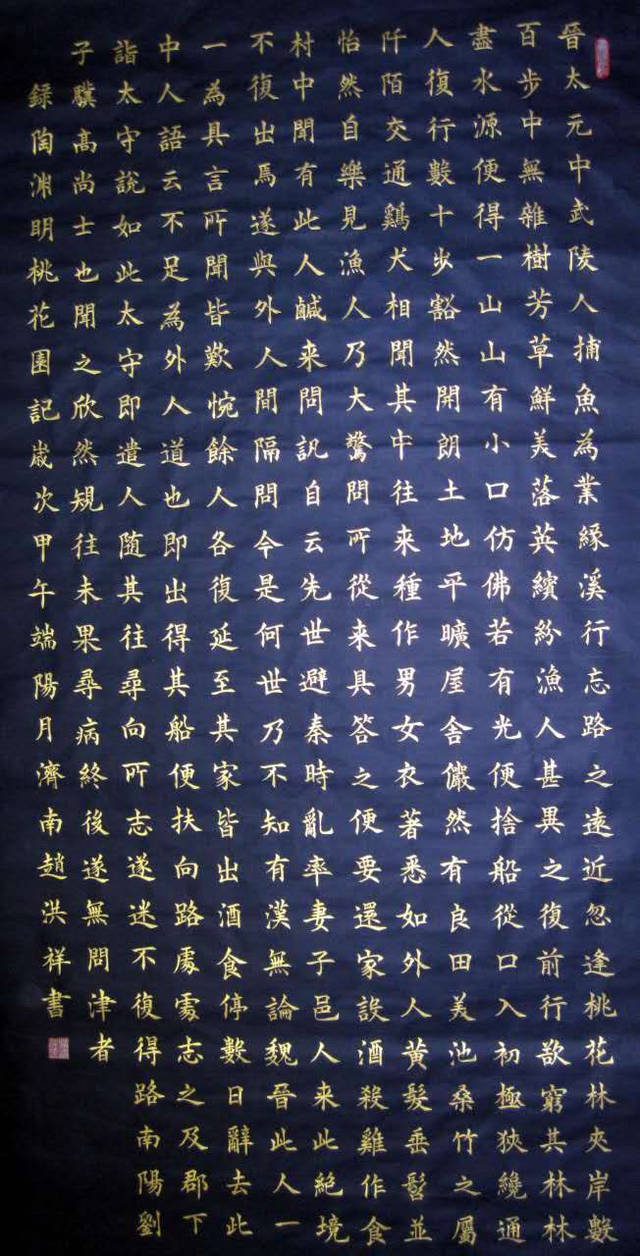 晉太元中武陵人捕魚為業緣溪行忘路之遠近忽逢桃花林夾岸數
百步中無雜樹芳草鮮美落英繽紛漁人甚異之復前行欲窮其林林
盡水源便得一山山有小口仿佛若有光便捨船從口入初極狹纔通
人復行數十步豁然開朗土地平曠屋舍儼然有良田美池桑竹之屬
阡陌交通鷄犬相聞其中往來種作男女衣著悉如外人黃髮垂髫並
怡然自樂見漁人乃大驚問所從來具答之便要還家設酒殺雞作食
村中聞有此人鹹来問訊自云先世避秦時亂率妻子邑人来此絕境
不復出焉遂與外人間隔問今是何世乃不知有漢無論魏晉此人一
一為具言所聞皆歎惋餘人各復延至其家皆出酒食停數日辭去此
中人語云不足為外人道也即出得其船便扶向路處處志之及郡下
詣太守說如此太守即遣人随其往尋向所志遂迷不復得路南陽劉
子驥高尚士也聞之欣然規往未果尋病終後遂無問津者
錄陶淵明桃花園記歲次甲午端陽月濟南趙洪祥書